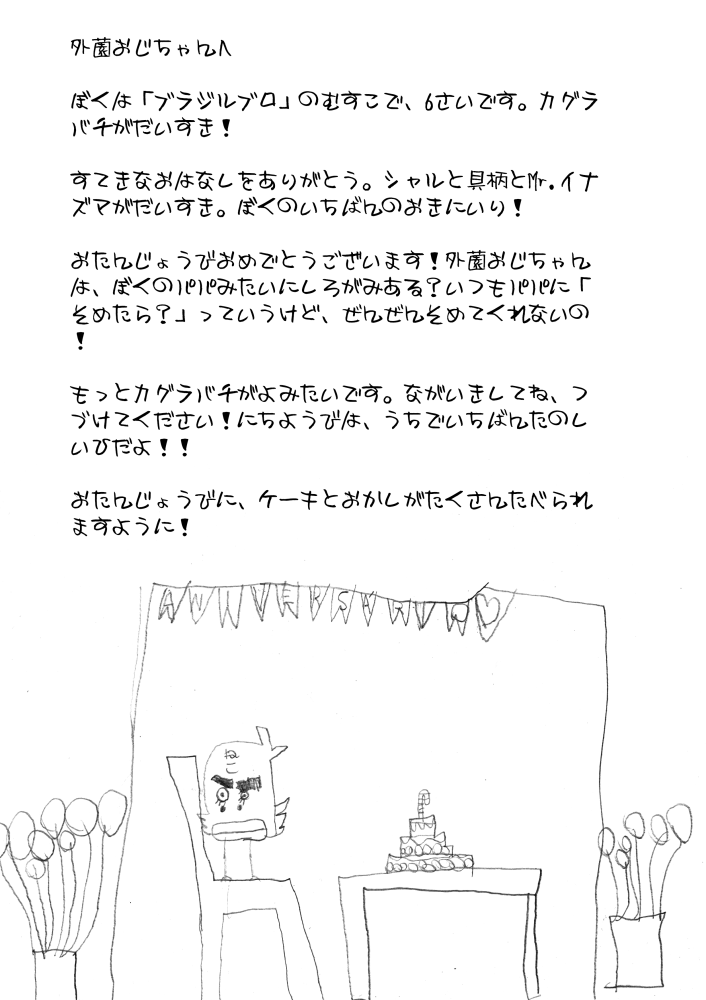 外薗おじちゃんへ
ぼくは「ブラジルブロ」のむすこで、6さいです。カグラ
バチがだいすき！
すてきなおはなしをありがとう。シャルと具柄とMr.イナ
ズマがだいすき。ぼくのいちばんのおきにいり！
おたんじょうびおめでとうございます！外薗おじちゃん
は、ぼくのパパみたいにしろがみある？いつもパパに「
そめたら？」っていうけど、ぜんぜんそめてくれないの
！
もっとカグラバチがよみたいです。ながいきしてね、つ
づけてください！にちようびは、うちでいちばんたのし
いひだよ！！
おたんじょうびに、ケーキとおかしがたくさんたべられ
ますように！
ANIVERSARIO
ねこ